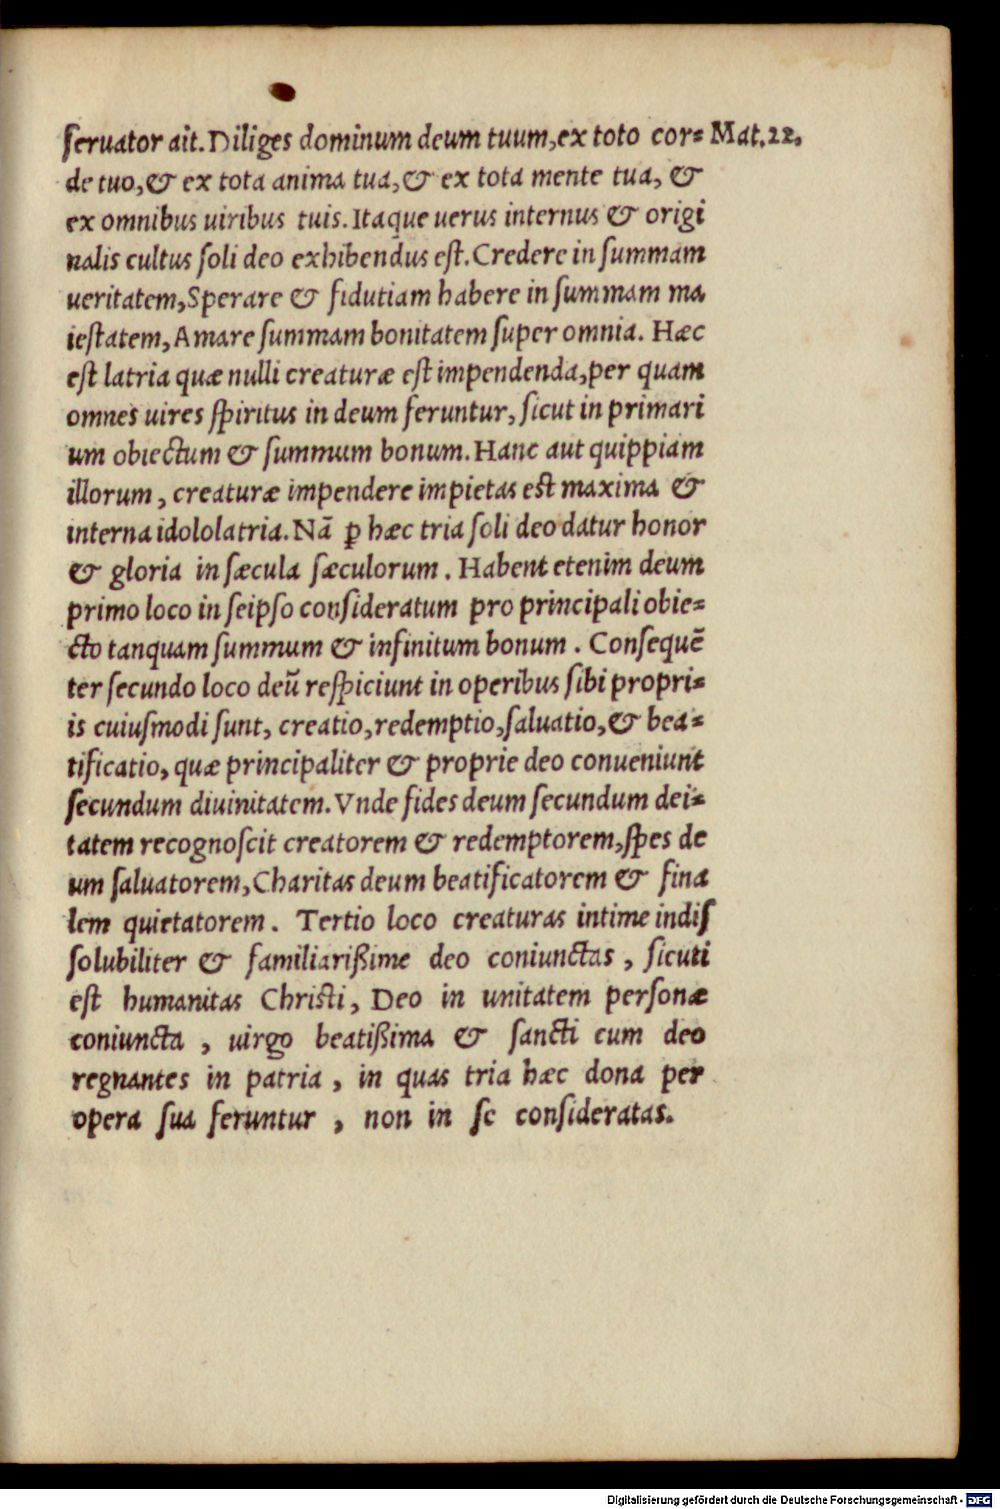 ſeruator ait. Diliges dominum deum tuum, ex toto cor= Mat. 22.
de tuo, & ex tota anima tua, & ex tota mente tua, &
ex omnibus uiribus tuis. Itaq̃ue uerus internus & origi
nalis cultus ſoli deo exhibendus eſt. Credere in ſummam
ueritatem, Sperare & fidutiam habere in ſummam ma
ieſtatem, Amare ſummam bonitatem ſuper omnia. Hæc
eſt latria quæ nulli creaturæ eſt impendenda, per quam
omnes uires ſpiritus in deum feruntur, ſicut in primari
um obiectum & ſummum bonum. Hanc aut quippiam
illorum, creaturæ impendere impietas eſt maxima &
interna idololatria. Nã ꝑ hæc tria ſoli deo datur honor
& gloria in ſæcula ſæculorum. Habent etenim deum
primo loco in ſeipſo conſideratum pro principali obie=
cto tanquam ſummum & infinitum bonum. Conſequẽ
ter ſecundo loco deũ reſpiciunt in operibus ſibi propri=
is cuiuſmodi ſunt, creatio, redemptio, ſaluatio, & bea=
tificatio, quæ principaliter & proprie deo conueniunt
ſecundum diuinitatem. Vnde fides deum ſecundum dei=
tatem recognoſcit creatorem & redemptorem, ſpes de
um ſaluatorem, Charitas deum beatificatorem & fina
lem quietatorem. Tertio loco creaturas intime indiſ
ſolubiliter & familiarißime deo coniunctas, ſicuti
eſt humanitas Chriſti, Deo in unitatem perſonæ
coniuncta, uirgo beatißima & ſancti cum deo
regnantes in patria, in quas tria hæc dona per
opera ſua feruntur, non in ſe conſideratas.
Digitalisierung gefördert durch die Deutsche Forschungsgemeinschaft - DFG